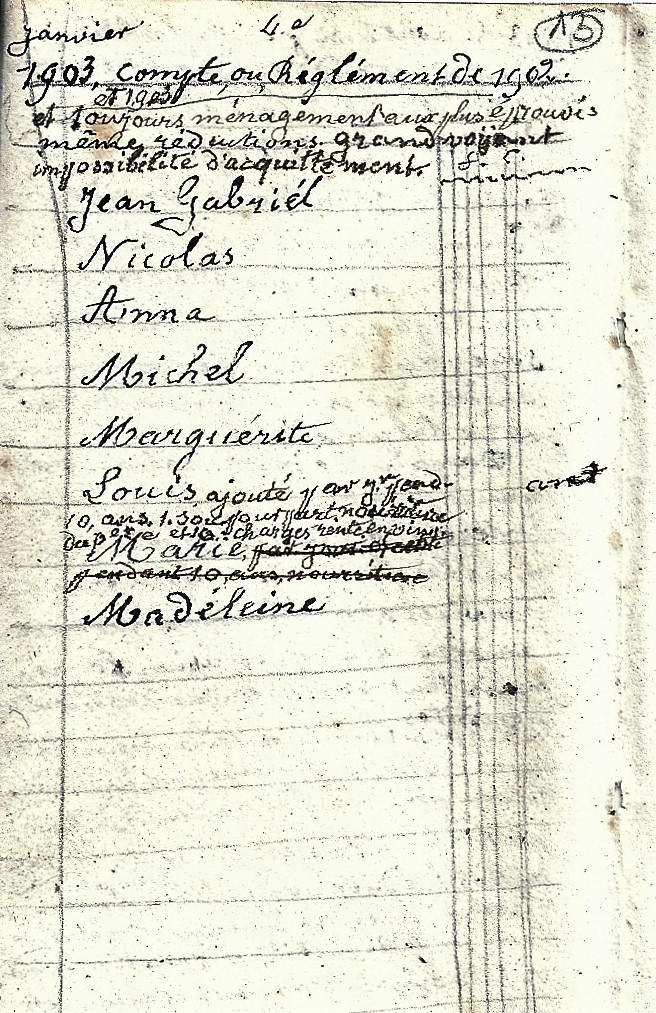 janvier 4e 15
1903, compte ou Réglément de 1902.
et 1903
et toujours ménagement aux plus éprouvés
même réductions. grand voyant
impossibilité d'acquittement.
Jean Gabriél
Nicolas
Anna
Michel
Marguérite
Louis ajouté par jr pend- ant
10, ans, 1. sou pour part nourriture
du père et sa charges rente en vin
Marie, par jour
pendant 10, ans, nourriture
Madéleine